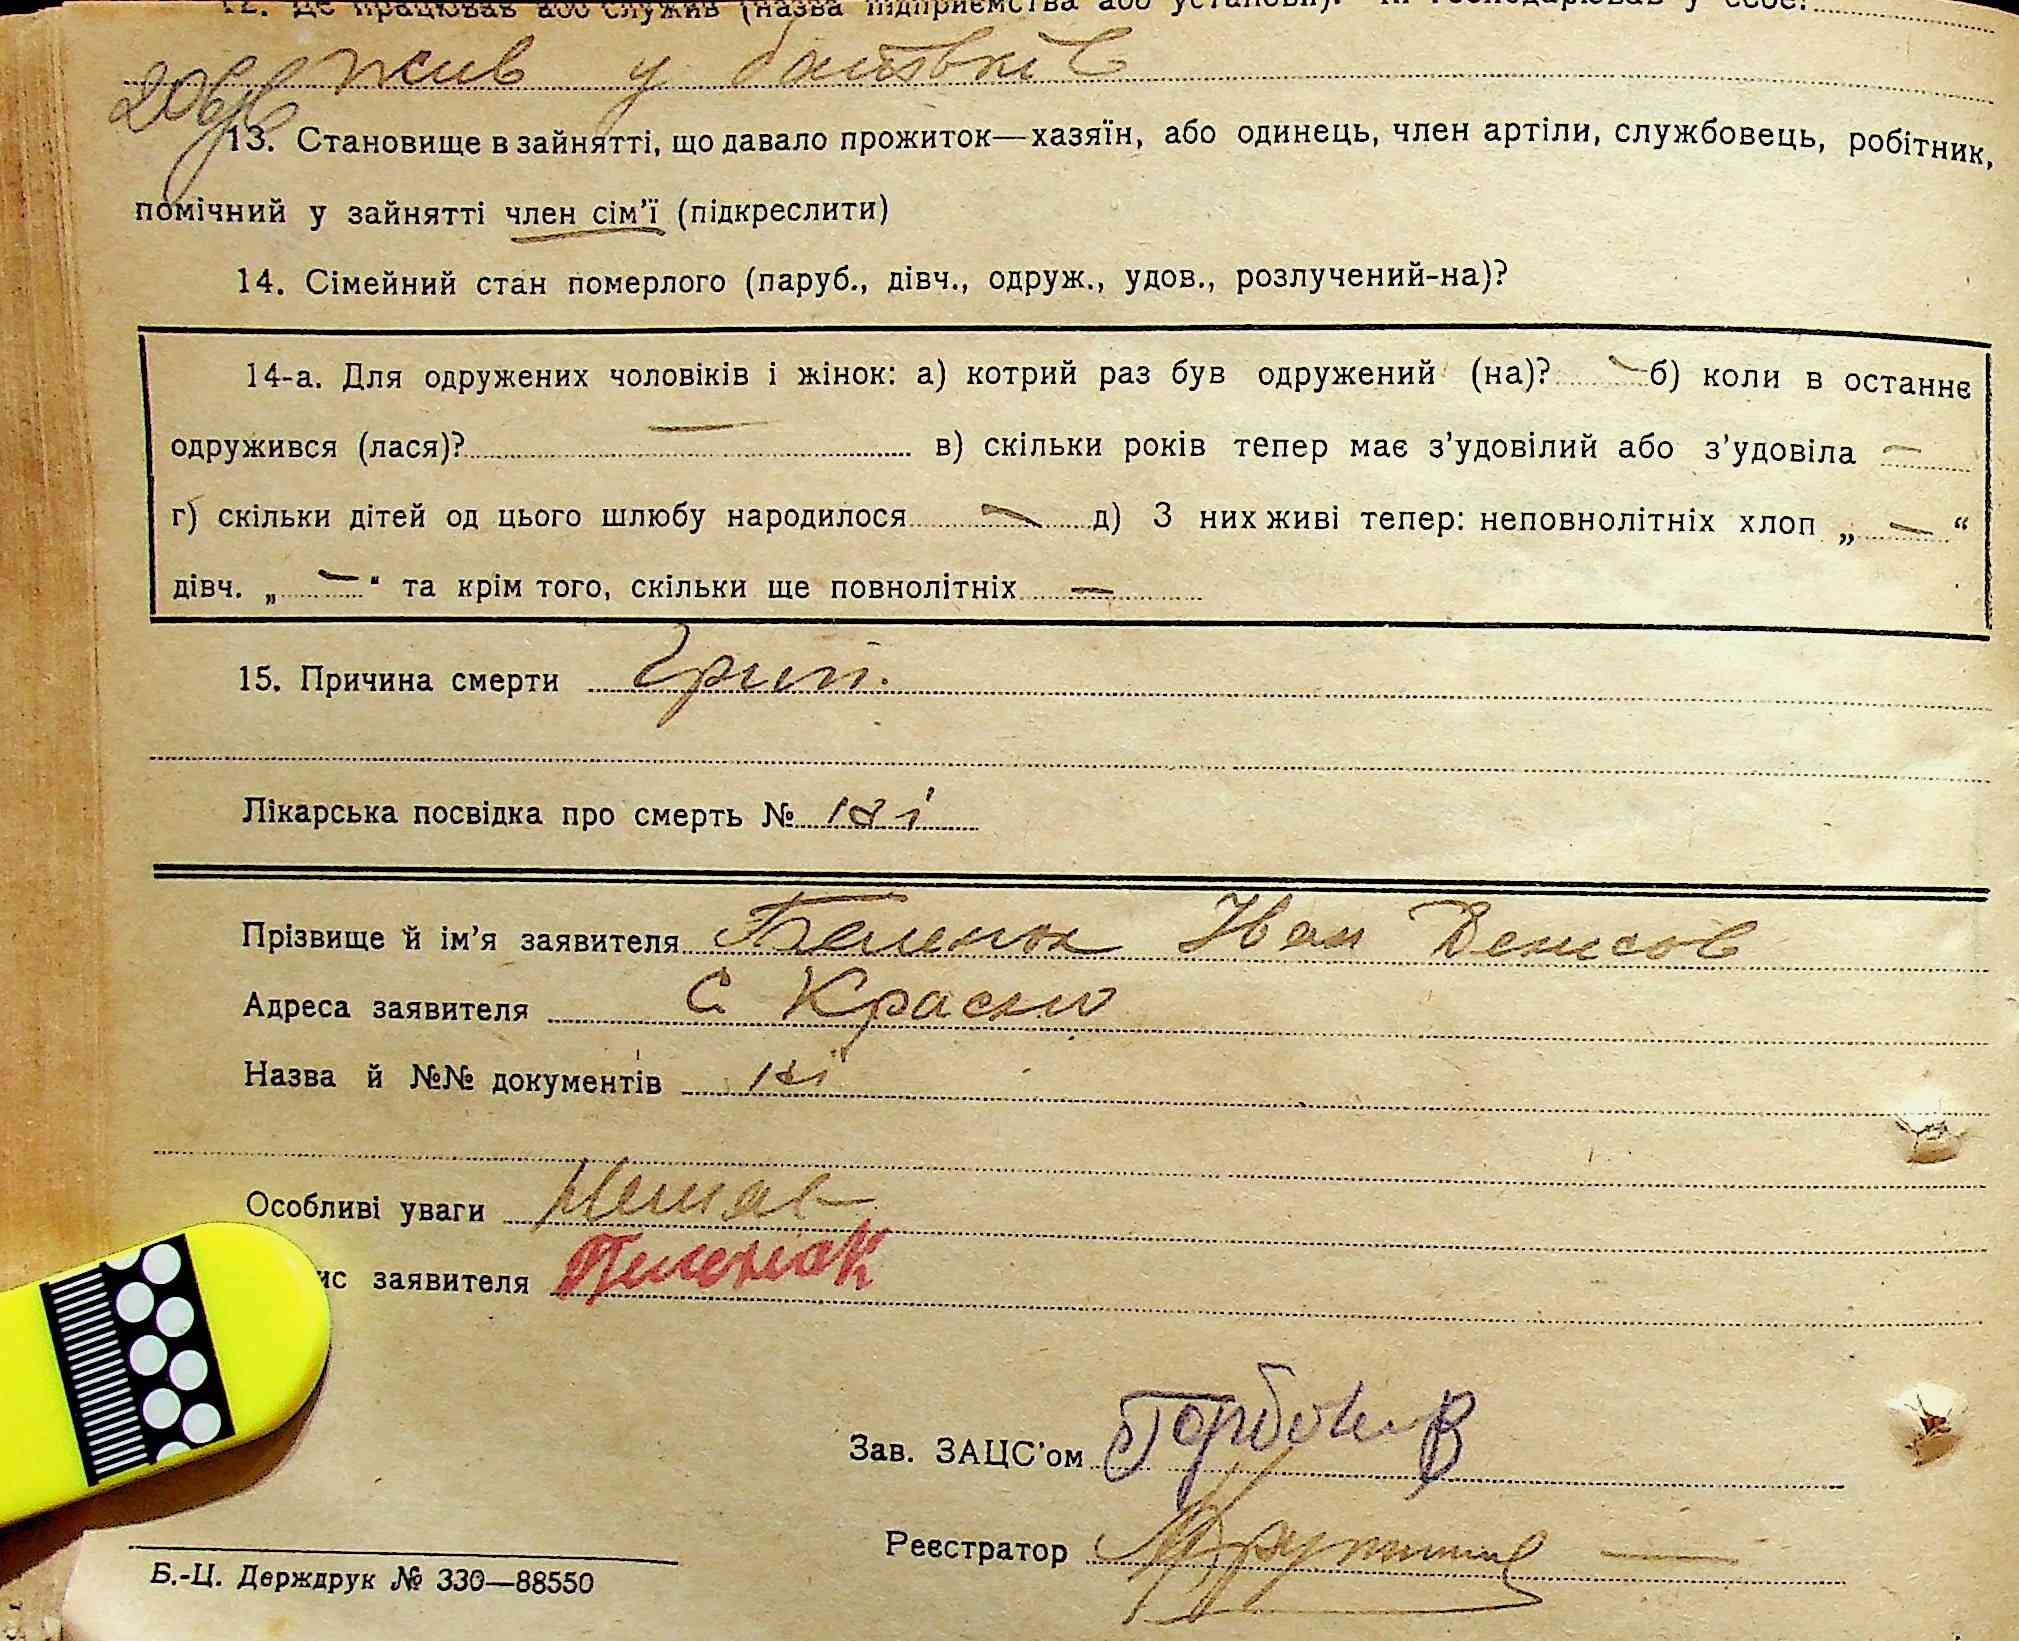 12. Де працював або служив (назва підприємства або установи). Чи господарював у себе?
жив у батьків
13. Становище в зайнятті, що давало прожиток—хазяїн, або одинець, член артіли, службовець, робітник,
помічний у зайнятті член сім’ї (підкреслити)
14. Сімейний стан померлого (паруб., дівч., одруж., удов., розлучений-на)?
14-а. Для одружених чоловіків і жінок: а) котрий раз був одружений (на)? — б) коли в останнє
одружився (лася)? — в) скільки років тепер має з’удовілий або з’удовіла —
г) скільки дітей од цього шлюбу народилося — д) З них живі тепер: неповнолітніх хлоп „ — “
дівч. „ — “ та крім того, скільки ще повнолітніх —
15. Причина смерти Грип.
Лікарська посвідка про смерть №
Прізвище й ім’я заявителя Іван Денисов
Адреса заявителя с Красно
Назва й №№ документів
Особливі уваги Немає
ис заявителя
Зав. ЗАЦС’ом
Реєстратор
Б.-Ц. Держдрук № 330—88550